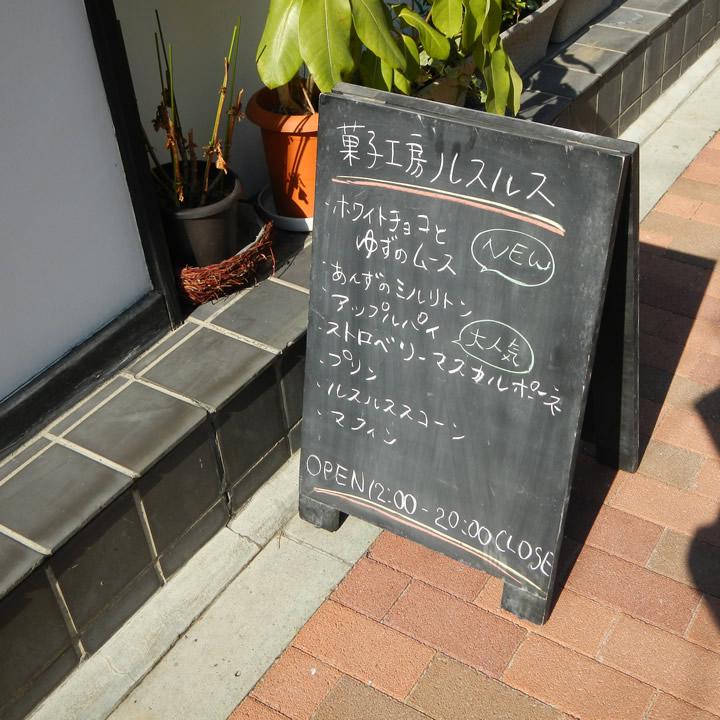 菓子工房ルスルス
・ホワイトチョコと
ゆずのムース
NEW
・あんずのミルリトン
・アップルパイ
大人気
・ストロベリーマスカルポーネ
・プリン
・ルスルススコーン
・マフィン
OPEN 12:00-20:00 CLOSE